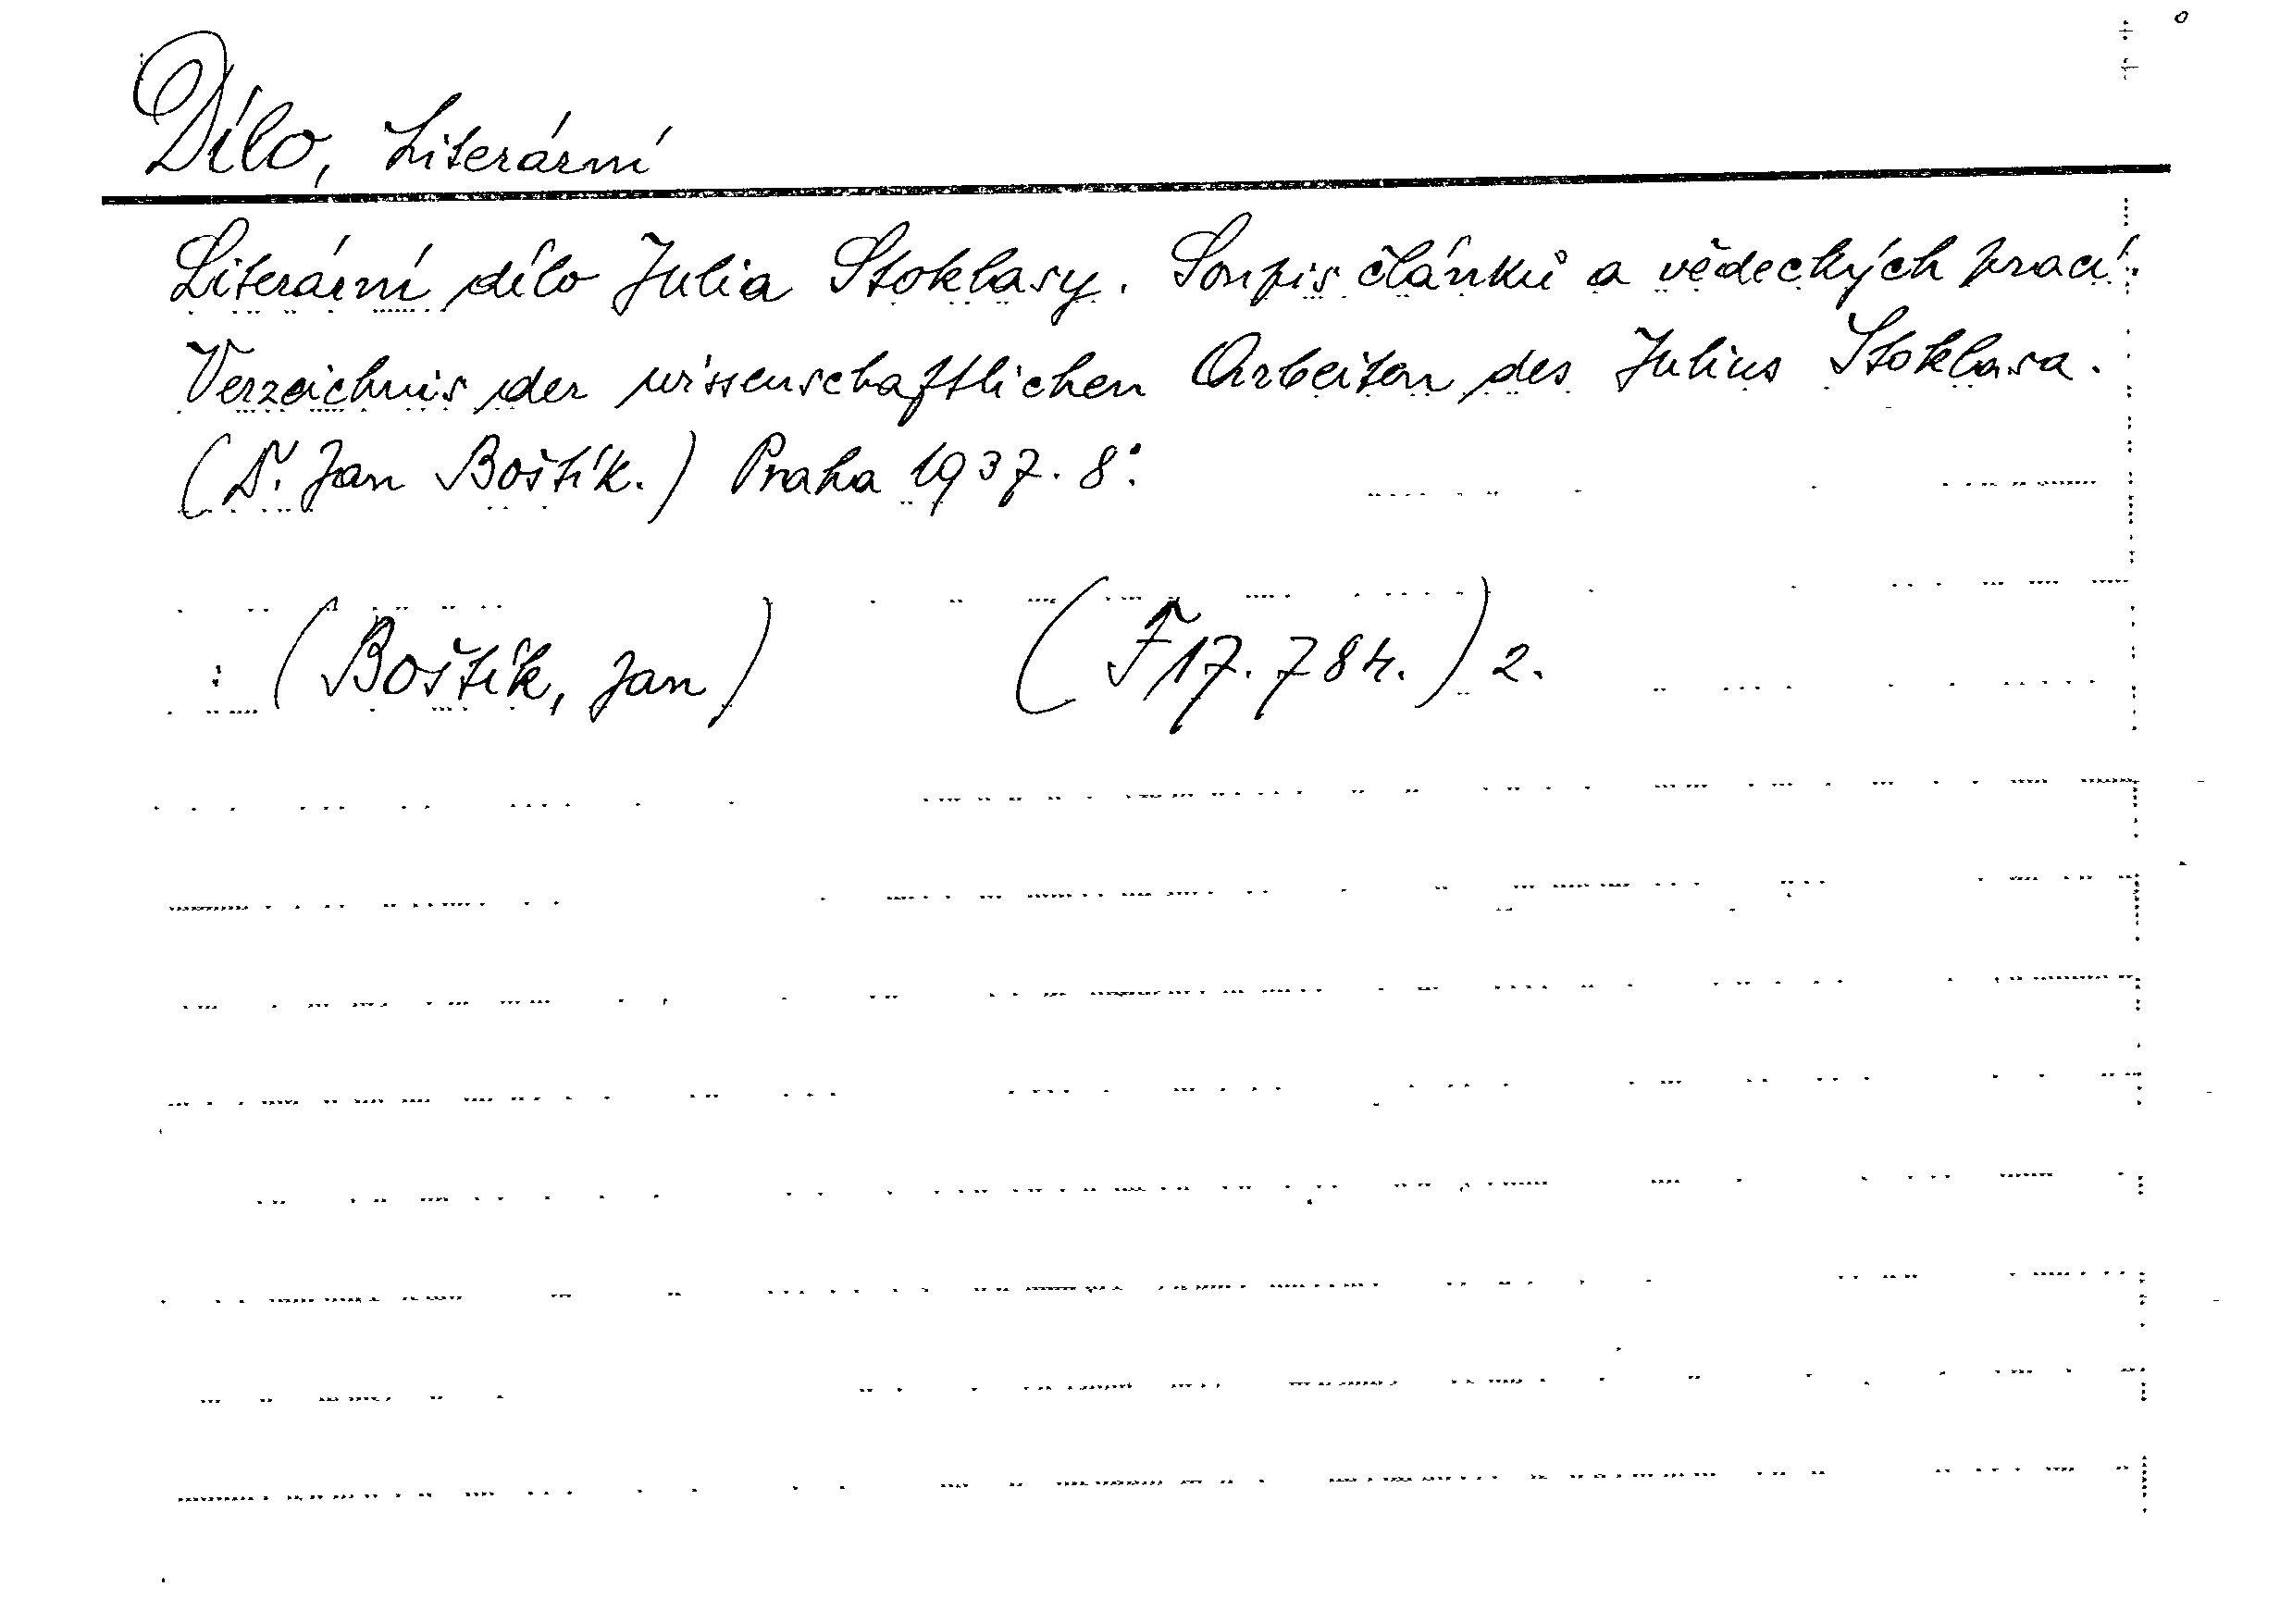 Dílo, Literární
Literární dílo Julia Stoklasy. Soupis článků a vědeckých prací.
Verzeichnis der wissenschaftlichen Arbeiten des Julius Stoklasa.
(Dr. Jan Boštík.) Praha 1937. 8°.
: (Boštík, Jan) (F 17.784.) 2.